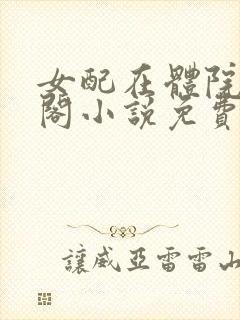 女配在體院
閣小說免費
讓威亞雷雷山